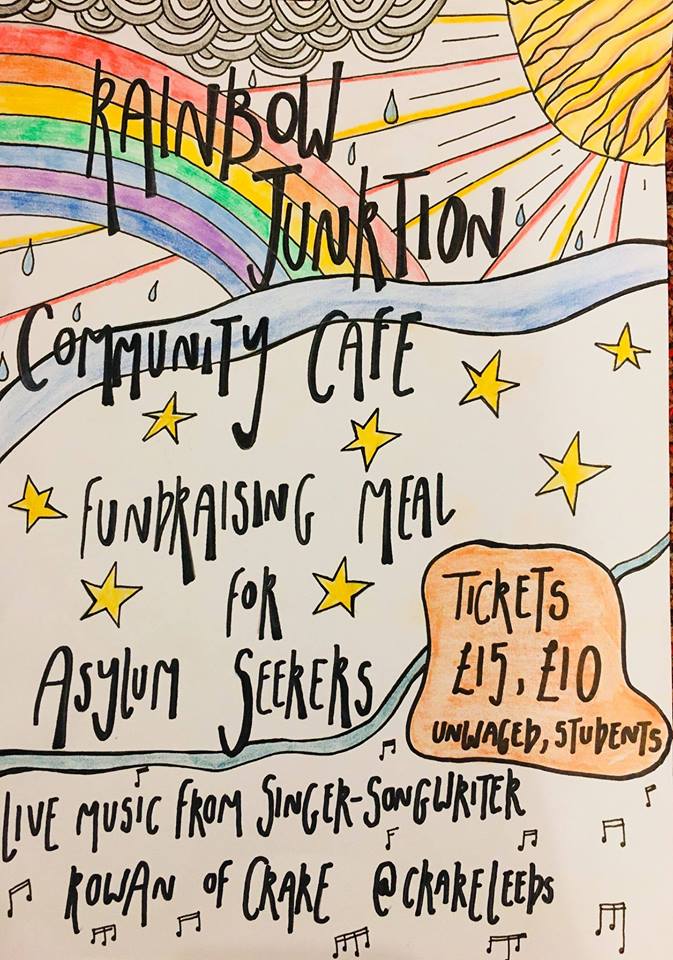 RAINBOW
JUNKTION
COMMUNITY CAFE
FUNDRAISING MEAL
FOR
ASYLUM SEEKERS
TICKETS
£15, £10
UNWAGED, STUDENTS
LIVE MUSIC FROM SINGER-SONGWRITER
ROWAN OF CRAKE @CRAKELEEDS